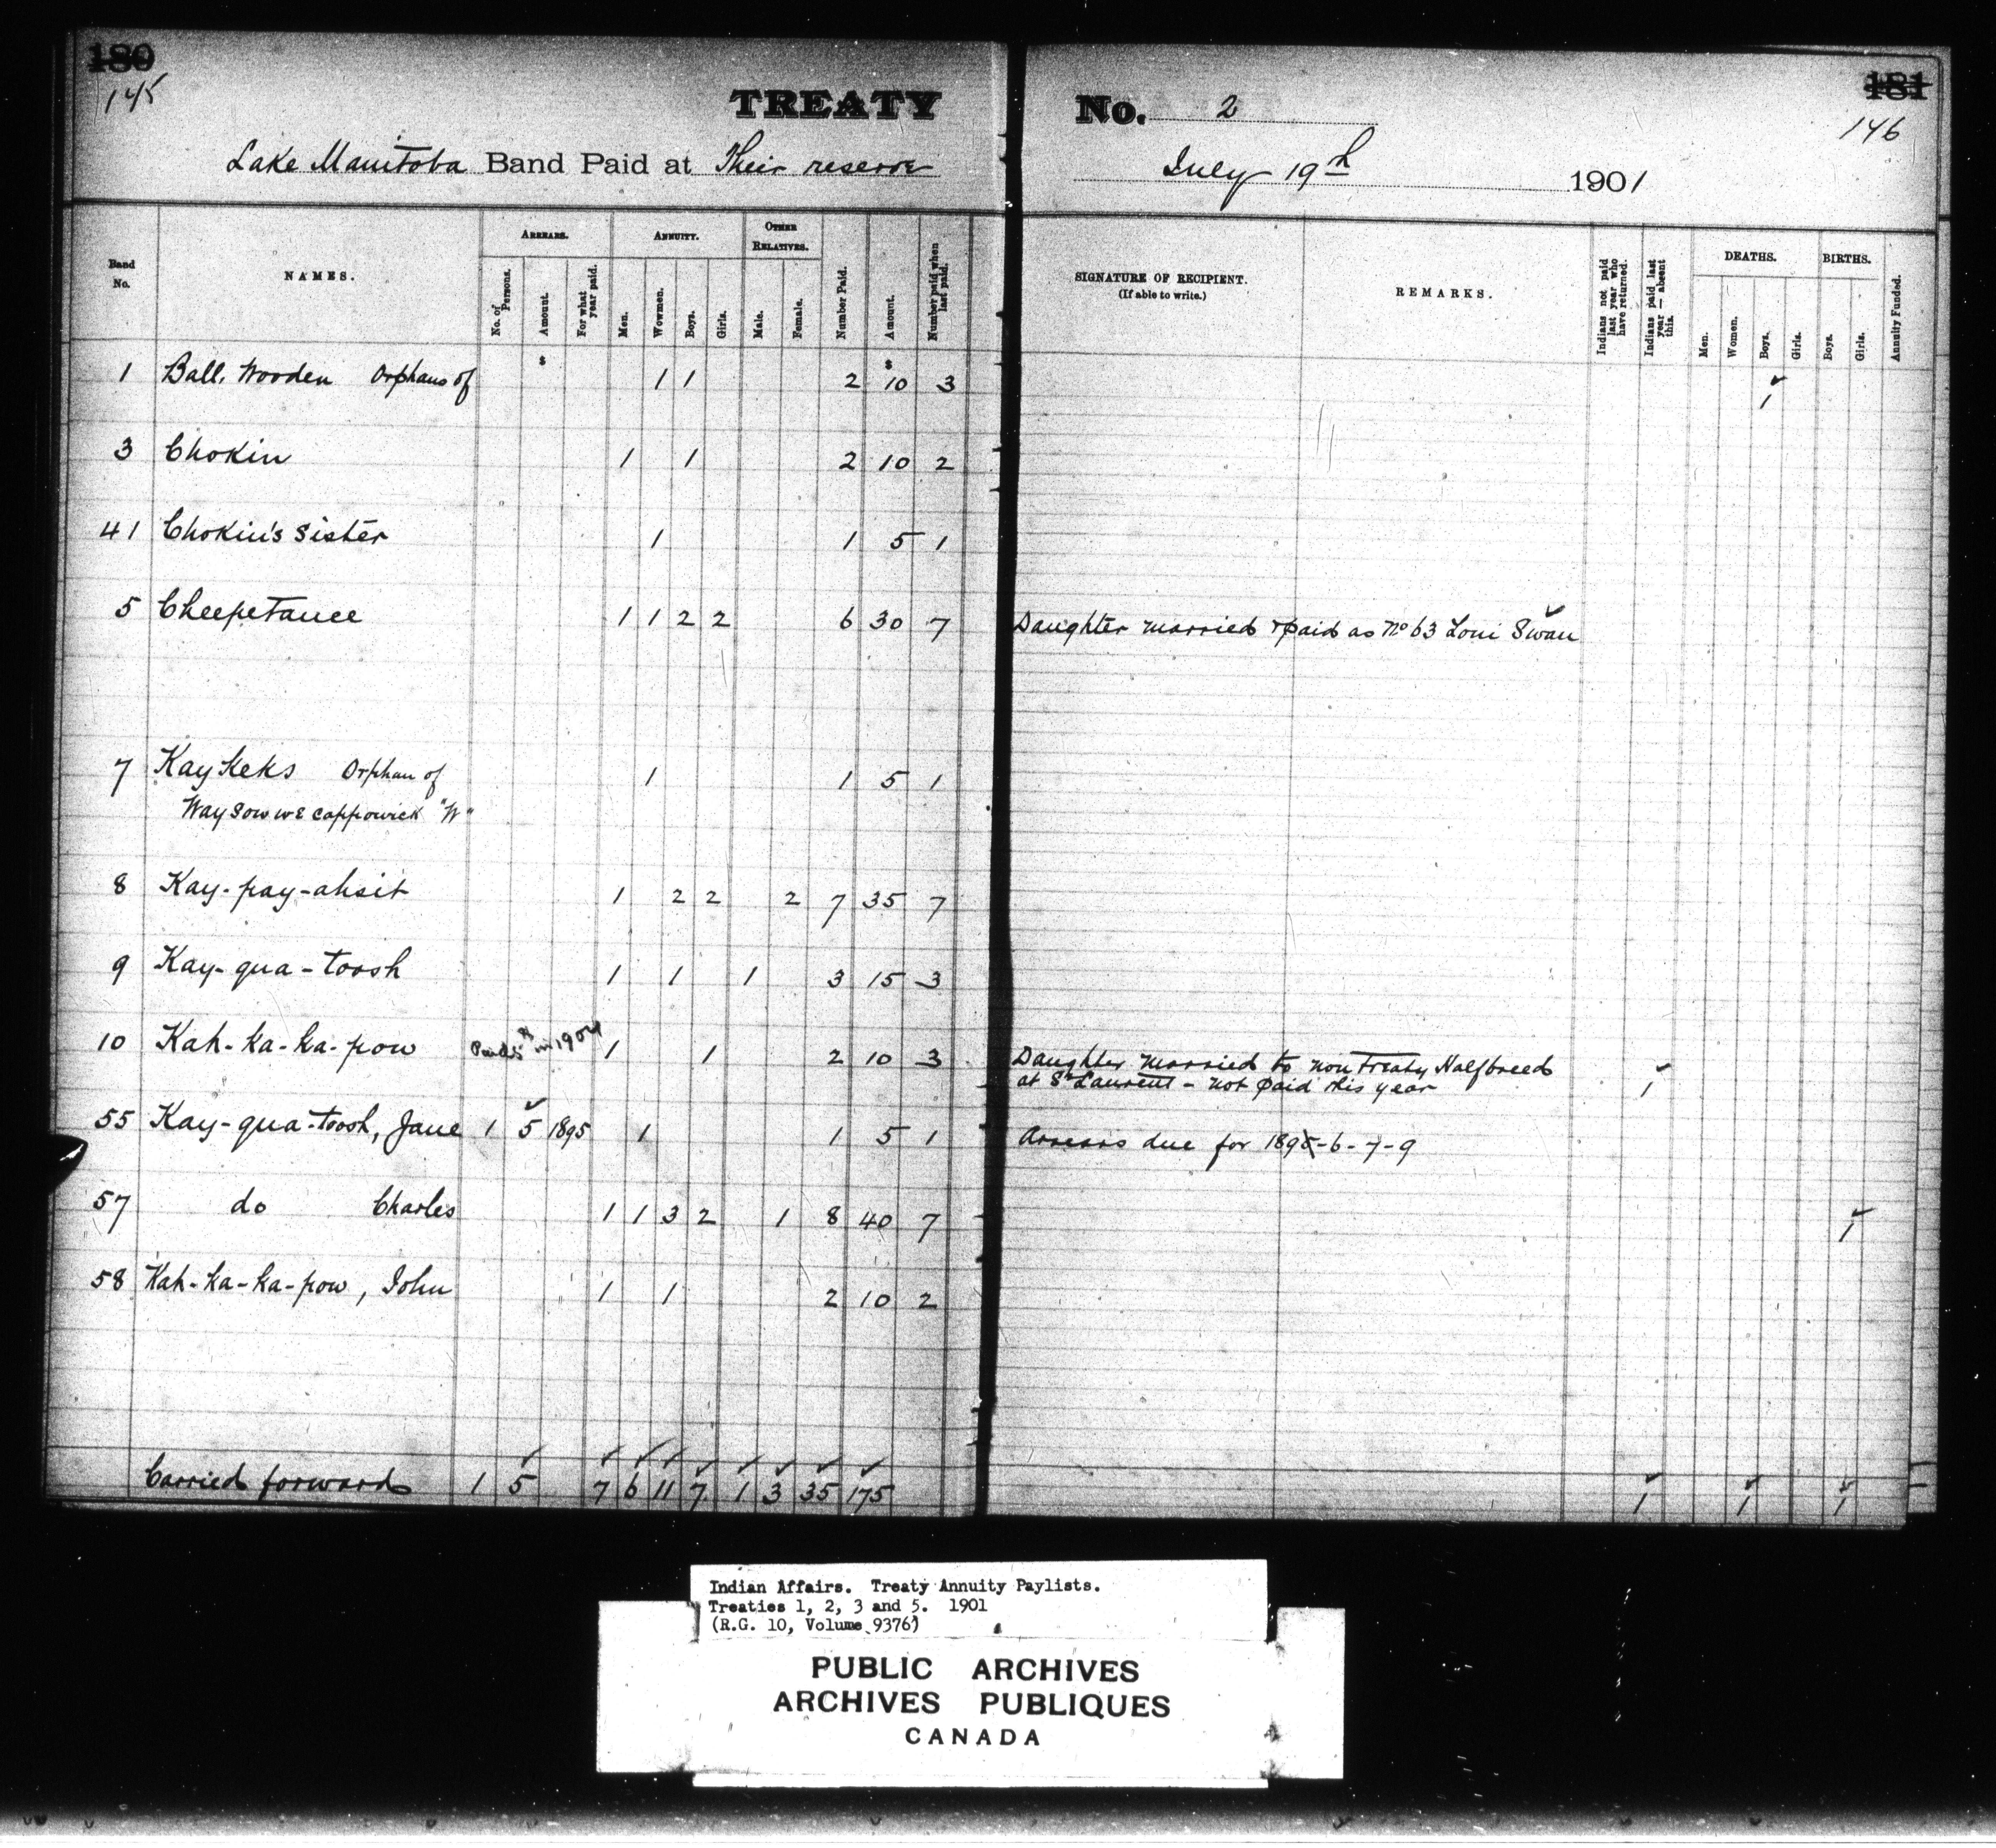 180
145
TREATY No. 2
181
146
Lake Manitoba Band Paid at Their reserve July 19th 1901
Band No.
NAMES.
ARREARS.
No. of Persons.
Amount.
For what year paid.
ANNUITY.
Men.
Wowmen.
Boys.
Girls.
OTHER RELATIVES.
Male.
Female.
Number Paid.
Amount.
Number paid when last paid.
SIGNATURE OF RECIPIENT.
(If able to write.)
REMARKS.
Indians not paid last year who have returned.
Indians paid last year — absent this.
DEATHS.
Men.
Women.
Boys.
Girls.
BIRTHS.
Boys.
Girls.
Annuity Funded.
$ $
1 Ball, Wooden Orphans of 1 1 2 10 3 1
3 Chokin 1 1 2 10 2
41 Chokin's Sister 1 1 5 1
5 Cheepetance 1 1 2 2 6 30 7 Daughter married & paid as No 63 Loni Swan
7 Kay Keks Orphan of 1 1 5 1
Way sow we cappowick "W"
8 Kay-pay-ahsit 1 2 2 2 7 35 7
9 Kay-qua-toosh 1 1 1 3 15 3
10 Kah-ka-ka-pow Paid $5 in 1904 1 1 2 10 3 Daughter married to non Treaty Halfbreed
at St Laurent - not paid this year 1
55 Kay-qua-toosh, Jane 1 5 1895 1 1 5 1 Arrears due for 1895-6-7-9
57 do Charles 1 1 3 2 1 8 40 7 1
58 Kah-ka-ka-pow, John 1 1 2 10 2
Carried forward 1 5 7 6 11 7 1 3 35 175 1 1 1
Indian Affairs. Treaty Annuity Paylists.
Treaties 1, 2, 3 and 5. 1901
(R.G. 10, Volume 9376)
PUBLIC ARCHIVES
ARCHIVES PUBLIQUES
CANADA